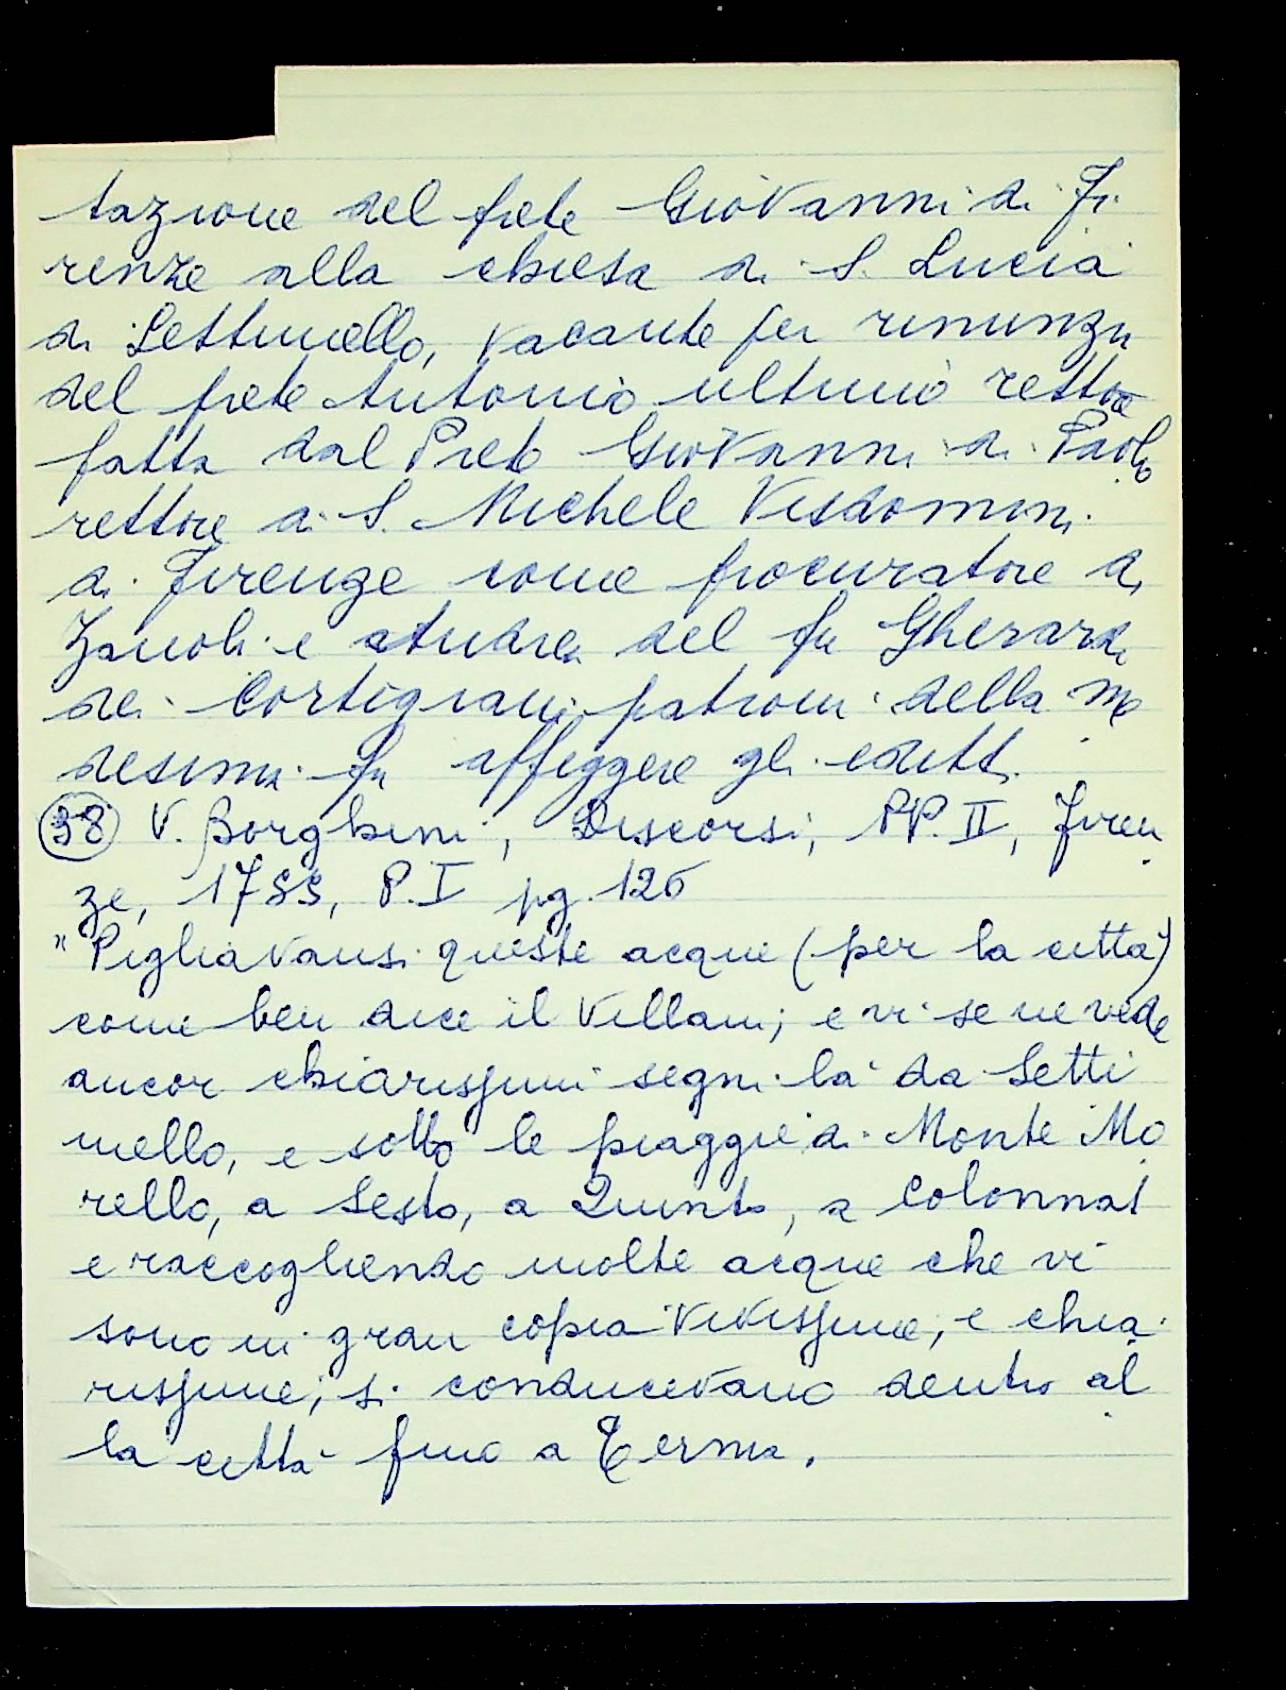 tazione del prete Giovanni di Fi
renze alla chiesa di S. Lucia
di Settimello, vacante per rinunzia
del prete Antonio ultimo rettore
fatta dal Prete Giovanni di Paolo
rettore di S. Michele Visdomini
di Firenze come procuratore di
Zanobi e Andrea del fu Gherardo
dei Cortigiani patroni della me
desima fa affiggere gli editti.
(38) V. Borghini, Discorsi, PP. II, Firen
ze, 1755, P. I pg. 126
"Pigliavansi queste acque (per la città)
come ben dice il Villani; e vi se ne vede
ancor chiarissimi segni là da Setti
mello, e sotto le piaggie di Monte Mo
rello, a Sesto, a Quinto, a Colonnat
e raccogliendo molte acque che vi
sono in gran copia vivissime, e chia
rissime, si conducevano dentro al
la città fino a Terma.